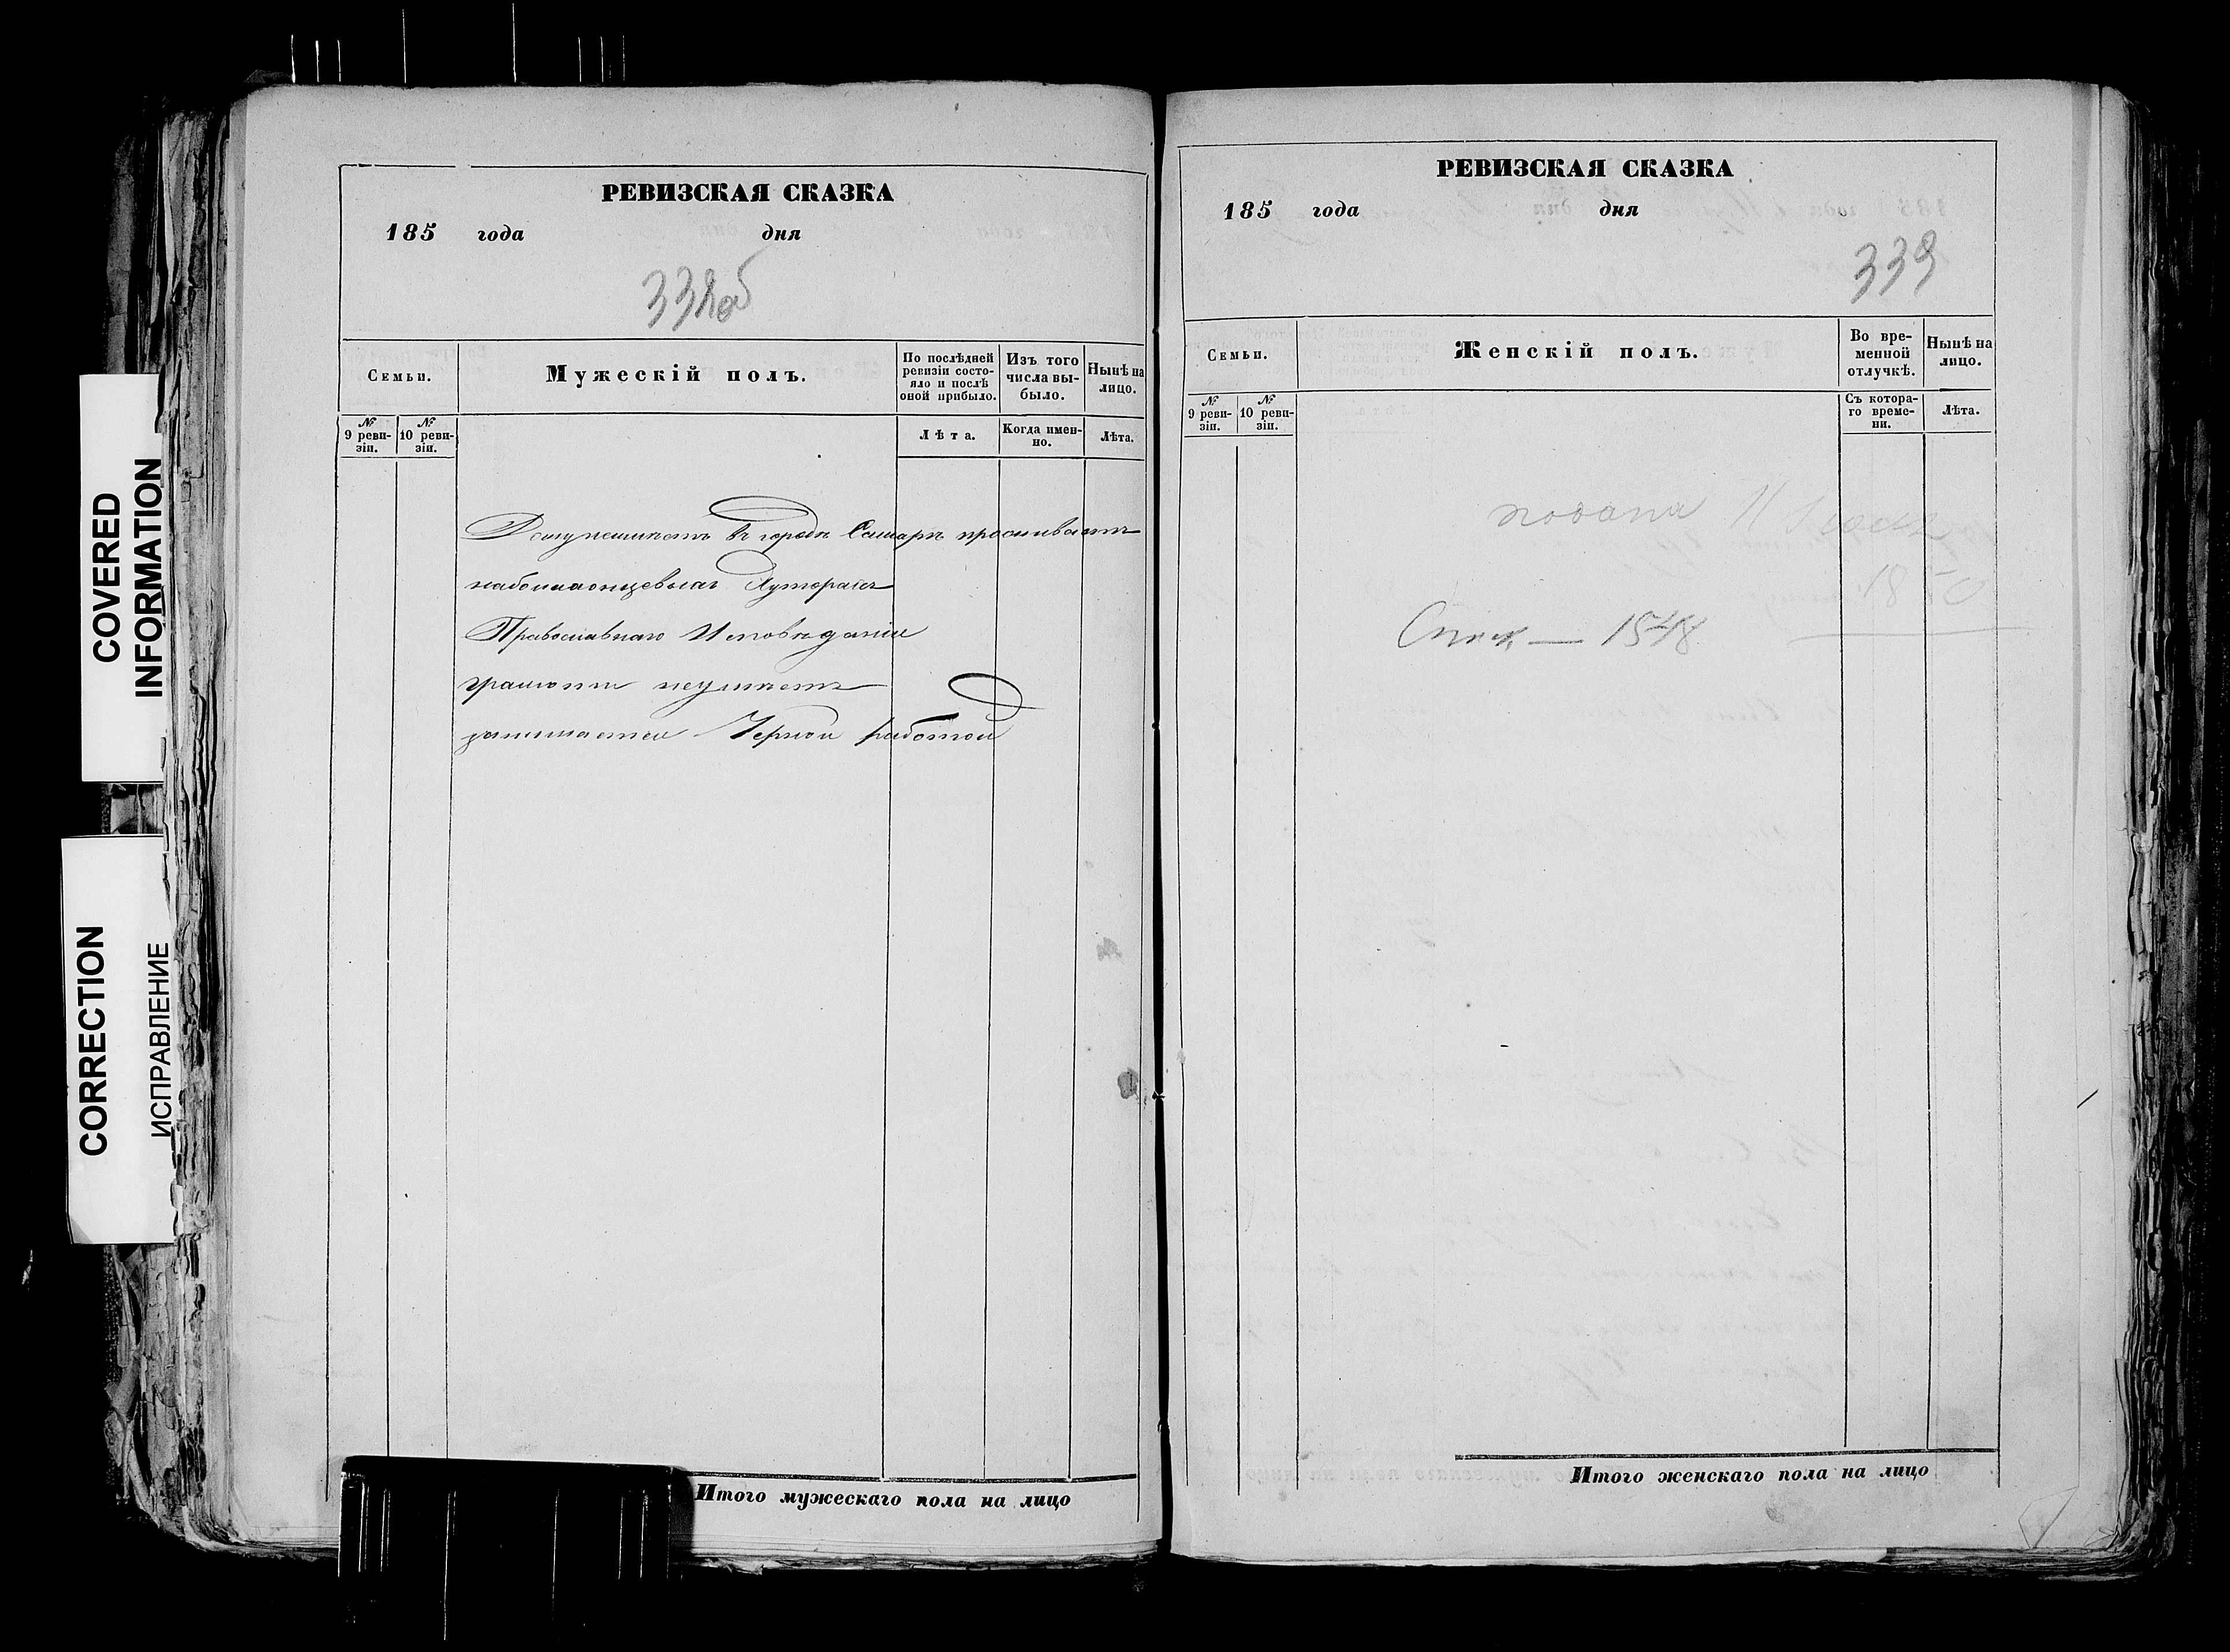 COVERED
INFORMATION
CORRECTION
ИСПРАВЛЕНИЕ
РЕВИЗСКАЯ СКАЗКА
185 года дня
338об
Семьи.
Мужескій полъ.
По послѣдней ревизіи состо-
яло и послѣ
оной прибыло.
Изъ того
числа вы-
было.
Нынѣ на
лицо.
№
9 реви-
зіи.
№
10 реви-
зіи.
Лѣта.
Когда имен-
но.
Лѣта.
въ городѣ Самарѣ проживаетъ
Хуторахъ
Православнаго Исповѣданія
грамоти неумѣетъ
занимается Черной работой
Итого мужескаго пола на лицо
РЕВИЗСКАЯ СКАЗКА
185 года дня
339
Семьи.
Женскій полъ.
Во вре-
менной
отлучкѣ.
Нынѣ на
лицо.
№
9 реви-
зіи.
№
10 реви-
зіи.
Съ котора-
го време-
ни.
Лѣта.
подана 11
1850
1548
Итого женскаго пола на лицо